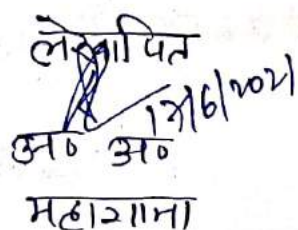 लेखापित
17/6/2021
अ० अ०
महागामा